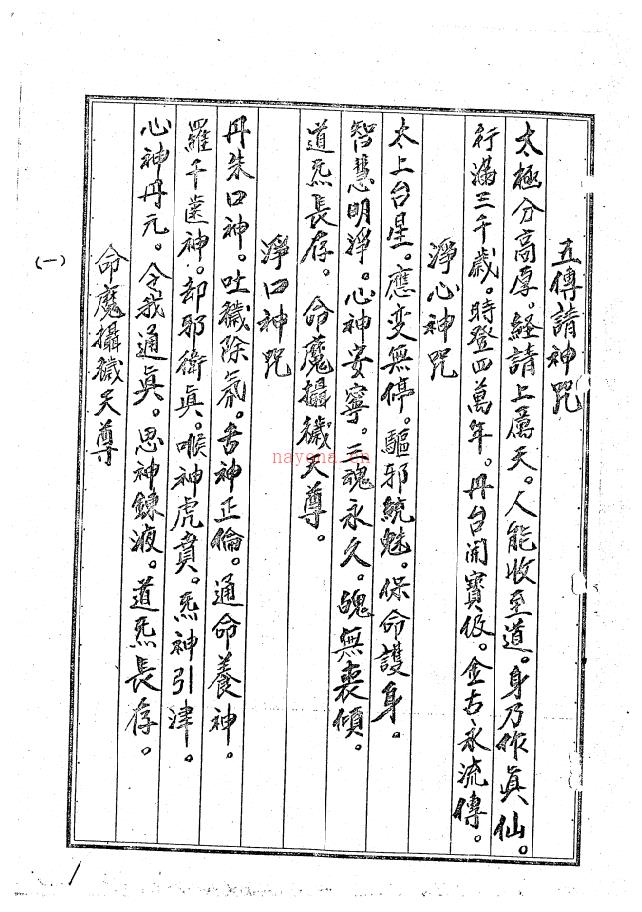 五傳請神咒
太極分高厚。経請上厲天。人能收至道。身乃作眞仙。
行滿三千歲。時登四萬年。丹台開寶伋。金古永流傳。
淨心神咒
太上台星。應变無停。驅邪統魅。保命護身。
智慧明淨。心神安寧。三魂永久。魄無喪傾。
道炁長存。命魔攝穢天尊。
淨口神咒
丹朱口神。吐穢除氛。舌神正倫。通命養神。
羅千蓙神。却邪衛眞。喉神虎賁。炁神引津。
心神丹元。令我通眞。思神鍊液。道炁長存。
命魔攝穢天尊
(一)
1
nayona.cn